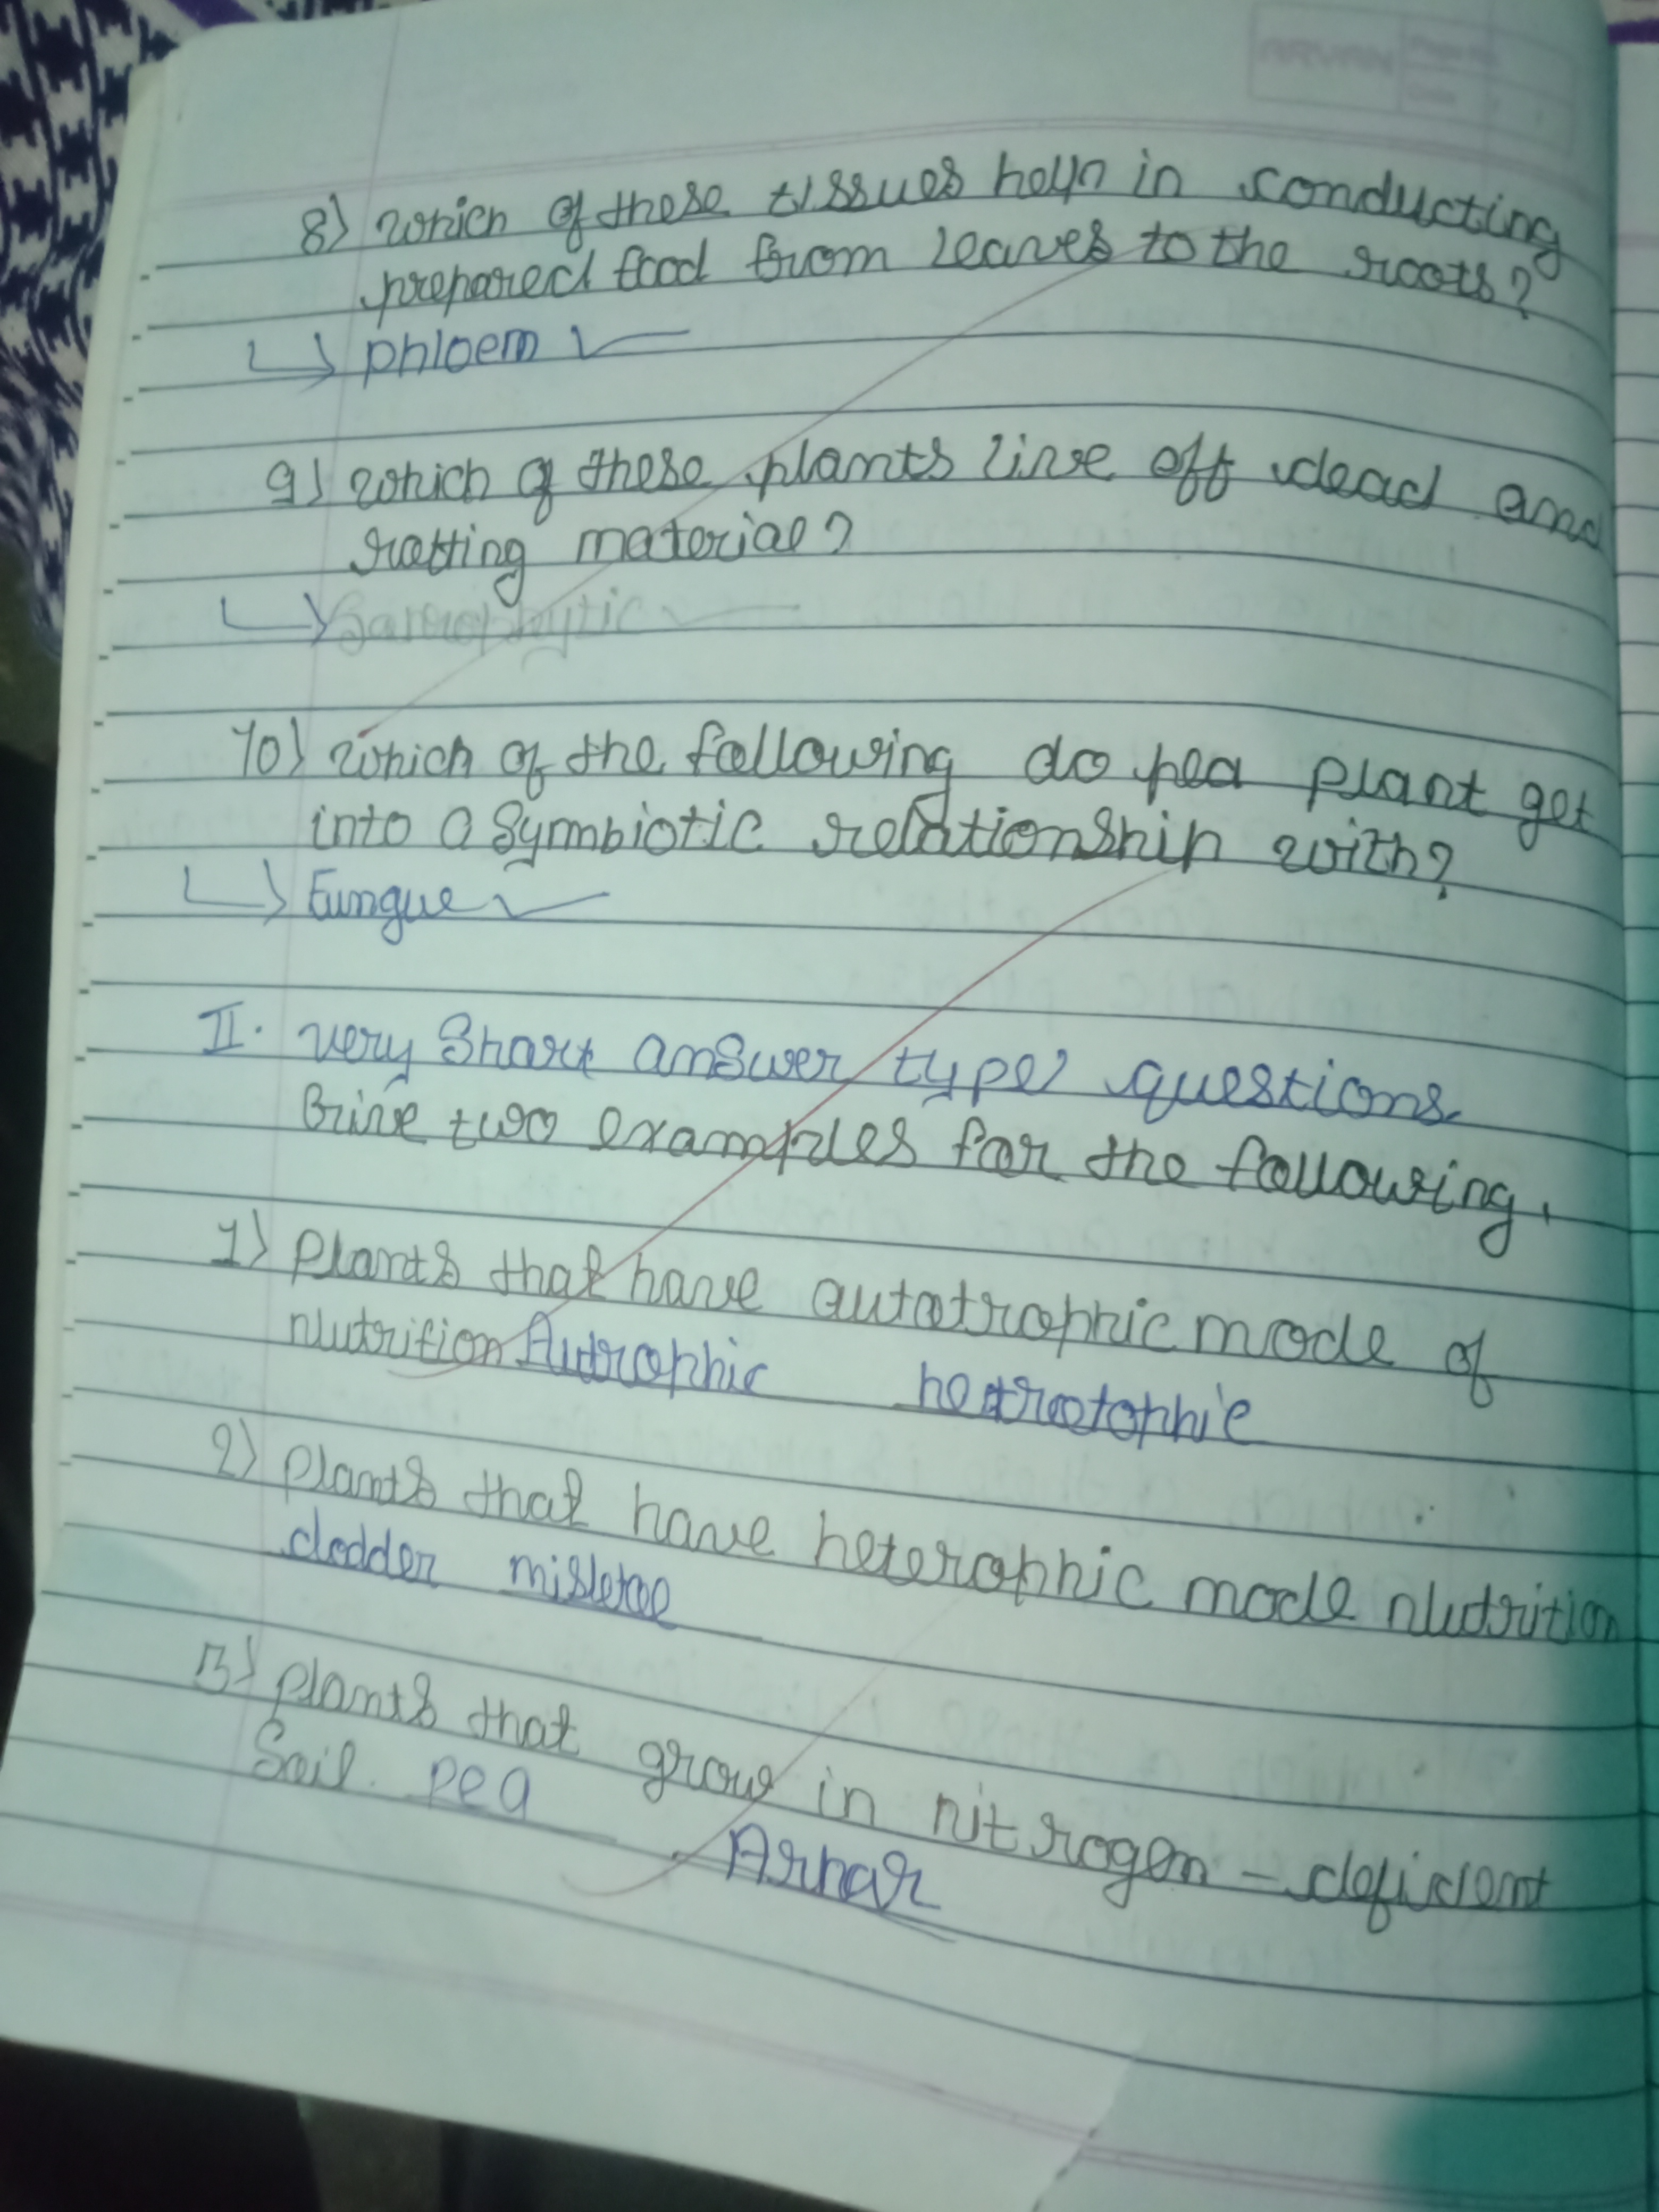 8) which of these tissues help in conducting
prepared food from leaves to the roots?
↳ phloem ✓
9) which of these plants live off dead and
rotting material?
↳ Saprophytic ✓
10) which of the following do pea plant get
into a symbiotic relationship with?
↳ Fungue ✓
II. very short answer type questions.
Give two examples for the following.
1) plants that have autotrophic mode of
nutrition Autrophic hetrotophic
2) plants that have heterophic mode nutrition
dodder misletoe
3) plants that grow in nitrogen - deficient
Soil. pea Arhar